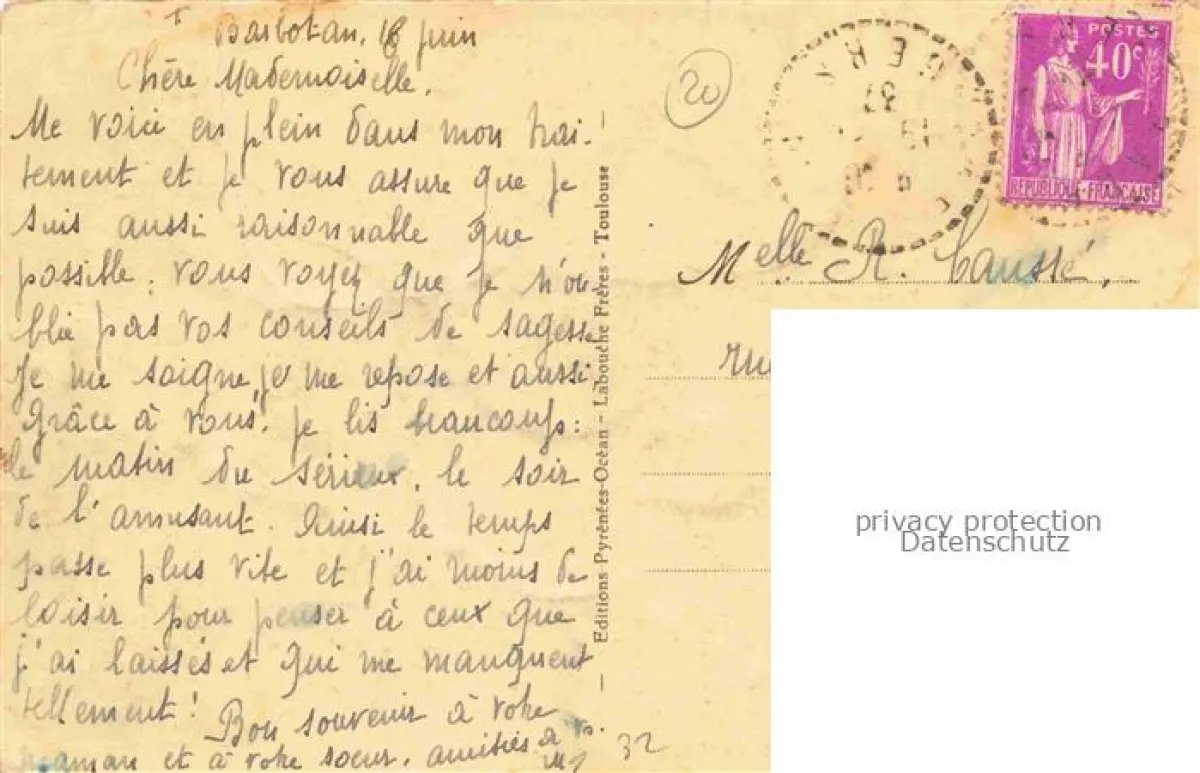 Barbotan, 18 juin
Chère Mademoiselle,
Me voici en plein dans mon trai-
tement et je vous assure que je
suis aussi raisonnable que
possible; vous voyez que je n'ou-
blie pas vos conseils de sagesse
Je me soigne, je me repose et aussi
grâce à vous! je lis beaucoup:
le matin du sérieux, le soir
de l'amusant. Ainsi le temps
passe plus vite et j'ai moins de
loisir pour penser à ceux que
j'ai laissés et qui me manquent
tellement! Bon souvenir à votre
maman et à votre soeur, amitiés à vs.
32
Editions Pyrénées-Océan - Labouche Frères - Toulouse
20
GERS
37
POSTES
40c
REPUBLIQUE-FRANÇAISE
Melle R. Caussé,
rue
privacy protection
Datenschutz